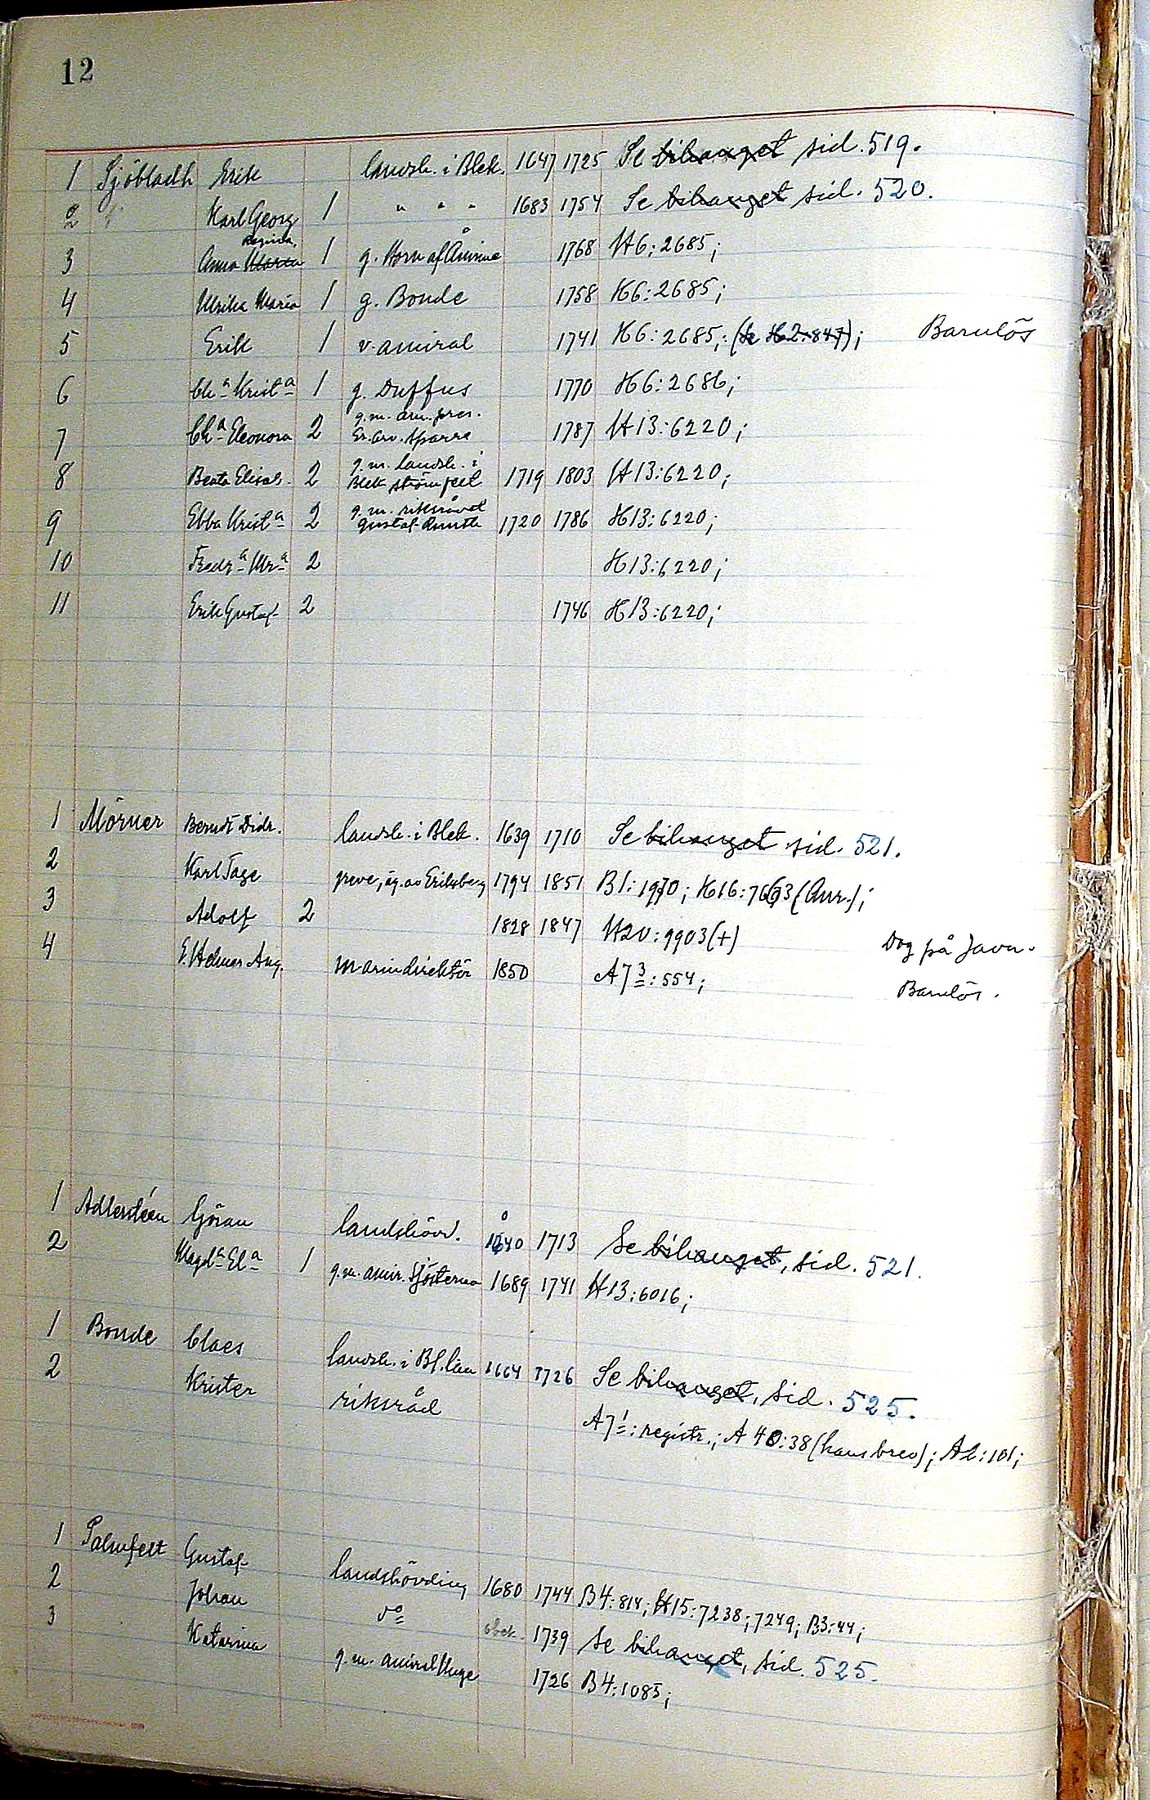 12
1 Sjöbladh Erik landsh. i Blek. 1647 1725 Se bihanget sid. 519.
2 Karl Georg 1 " " " 1683 1754 Se bihanget sid. 520.
Regina,
3 Anna Maria 1 g. Horn af Åminne 1768 H6:2685;
4 Ulrika Maria 1 g. Bonde 1758 H6:2685;
5 Erik 1 v. amiral 1741 H6:2685; (se H2:847); Barnlös
6 Cha Krista 1 g. Duffus 1770 H6:2686;
g.m. am. pres.
7 Cha Eleonora 2 Er. Arv. Sparre 1787 H13:6220;
g.m. landsh. i
8 Beata Elisab. 2 Blek Strömfelt 1719 1803 H13:6220;
g.m. riksrådet
9 Ebba Krista 2 Gustaf Ruuth 1720 1786 H13:6220;
10 Fredra Ulra 2 H13:6220;
11 Erik Gustaf 2 1746 H13:6220;
1 Mörner Berndt Didr. landsh. i Blek. 1639 1710 Se bihanget sid. 521.
2 Karl Tage greve, äg. av Eriksberg 1794 1851 B1:1970; H16:7663 (Anr.);
3 Adolf 2 1828 1847 H20:9903(+) Dog på Java.
4 E. Helmer Aug. marindirektör 1850 A7 3:554; Barnlös.
1 Adlersteen Göran landshövd. 1640 1713 Se bihanget, sid. 521.
2 Magda Ela 1 g.m. amir. Sjöstierna 1689 1741 H13:6016;
1 Bonde Claes landsh. i Bl. län 1664 1726 Se bihanget, sid. 525.
2 Krister riksråd A7 1: registr.; A 40:38 (hans brev); A2:101;
1 Palmfelt Gustaf landshövding 1680 1744 B4:814; H15:7238; 7249; B3:44;
2 Johan do obek. 1739 Se bihanget, sid. 525.
3 Katarina g.m. amiral Unge 1726 B4:1085;